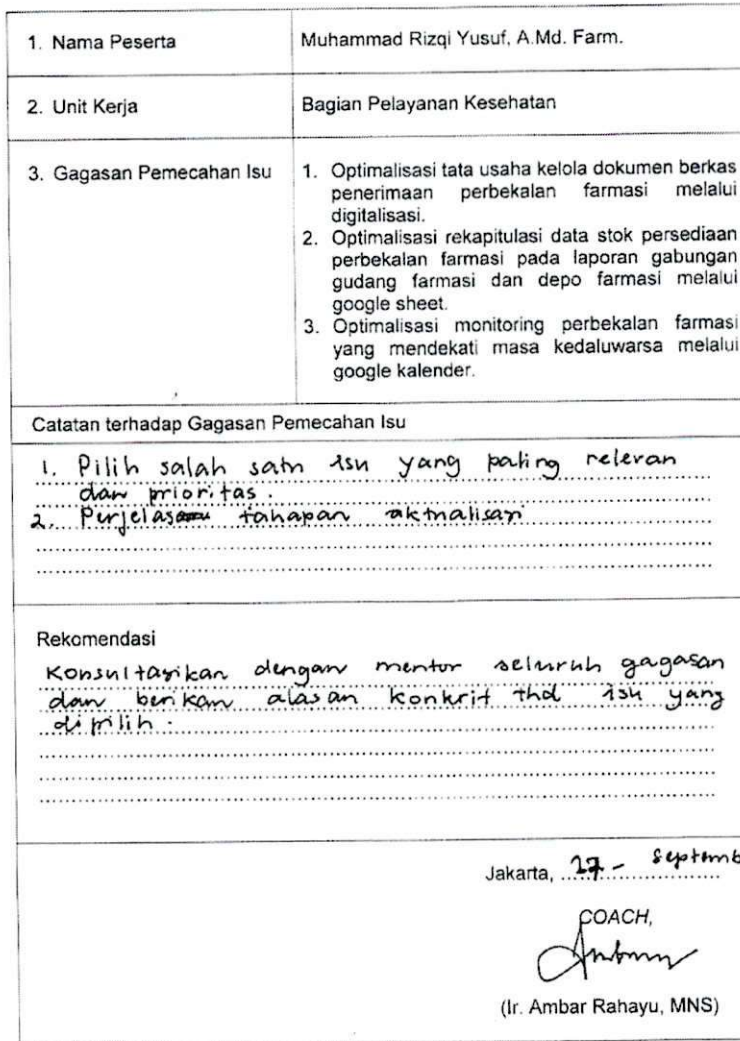 1. Nama Peserta
Muhammad Rizqi Yusuf, A.Md. Farm.
2. Unit Kerja
Bagian Pelayanan Kesehatan
3. Gagasan Pemecahan Isu
1. Optimalisasi tata usaha kelola dokumen berkas
penerimaan perbekalan farmasi melalui
digitalisasi.
2. Optimalisasi rekapitulasi data stok persediaan
perbekalan farmasi pada laporan gabungan
gudang farmasi dan depo farmasi melalui
google sheet.
3. Optimalisasi monitoring perbekalan farmasi
yang mendekati masa kedaluwarsa melalui
google kalender.
Catatan terhadap Gagasan Pemecahan Isu
1. Pilih salah satu isu yang paling relevan
dan prioritas.
2. Perjelas tahapan aktualisasi
Rekomendasi
Konsultasikan dengan mentor seluruh gagasan
dan berikan alasan konkrit thd isu yang
dipilih.
Jakarta, 27 - Septemb
COACH,
(Ir. Ambar Rahayu, MNS)